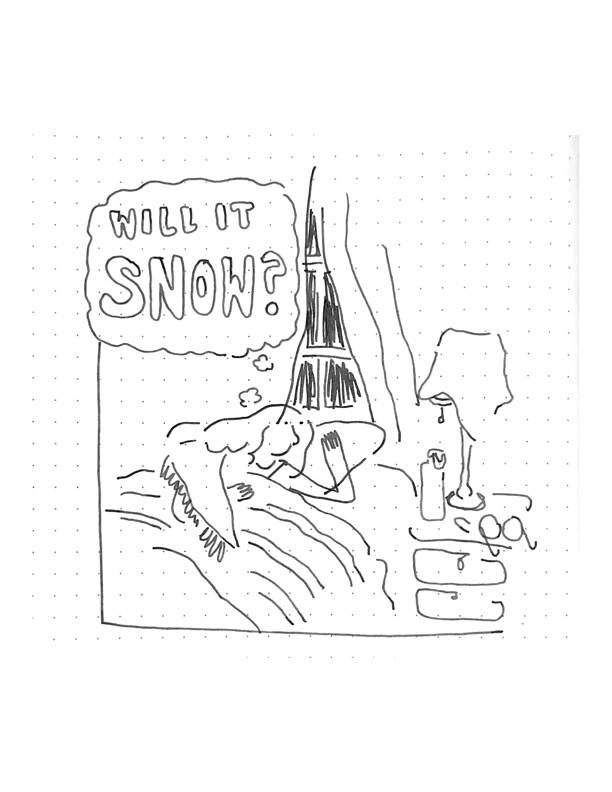 WILL IT
SNOW?